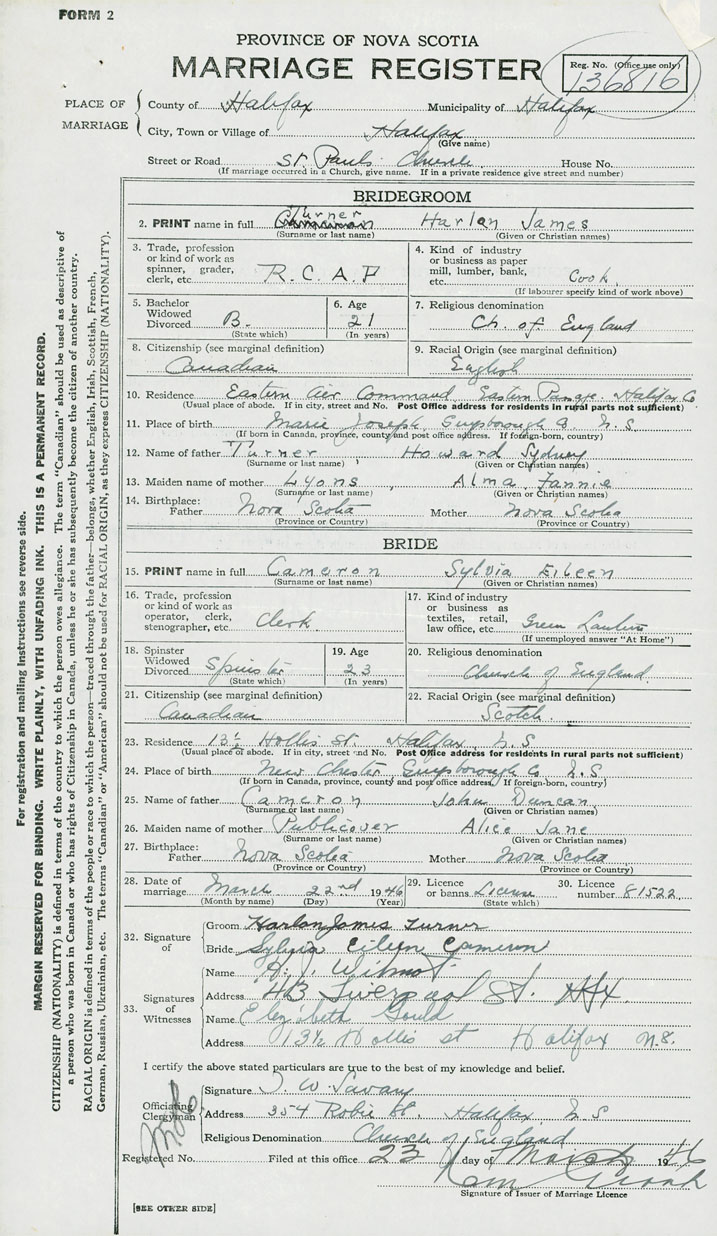 FORM 2
PROVINCE OF NOVA SCOTIA
MARRIAGE REGISTER
Reg. No. (Office use only)
136816
PLACE OF MARRIAGE
County of Halifax Municipality of Halifax
City, Town or Village of Halifax
(Give name)
Street or Road St. Pauls Church House No.
(If marriage occurred in a Church, give name. If in a private residence give street and number)
BRIDEGROOM
2. PRINT name in full Turner Harlan James
(Surname or last name) (Given or Christian names)
3. Trade, profession or kind of work as spinner, grader, clerk, etc. R.C.A.F
4. Kind of industry or business as paper mill, lumber, bank, etc. Cook
(If labourer specify kind of work above)
5. Bachelor Widowed Divorced B.
(State which)
6. Age 21
(In years)
7. Religious denomination Ch. of England
8. Citizenship (see marginal definition) Canadian
9. Racial Origin (see marginal definition) English
10. Residence Eastern Air Command Eastern Halifax Co
(Usual place of abode. If in city, street and No. Post Office address for residents in rural parts not sufficient)
11. Place of birth Marie Joseph Guysborough Co. N.S.
(If born in Canada, province, county and post office address. If foreign-born, country)
12. Name of father Turner, Howard Sydney
(Surname or last name) (Given or Christian names)
13. Maiden name of mother Lyons, Alma Fannie
(Surname or last name) (Given or Christian names)
14. Birthplace: Father Nova Scotia Mother Nova Scotia
(Province or Country) (Province or Country)
BRIDE
15. PRINT name in full Cameron Sylvia Eileen
(Surname or last name) (Given or Christian names)
16. Trade, profession or kind of work as operator, clerk, stenographer, etc. Clerk
17. Kind of industry or business as textiles, retail, law office, etc. Green Lantern
(If unemployed answer "At Home")
18. Spinster Widowed Divorced Spinster
(State which)
19. Age 23
(In years)
20. Religious denomination Church of England
21. Citizenship (see marginal definition) Canadian
22. Racial Origin (see marginal definition) Scotch
23. Residence 13½ Hollis St. Halifax N.S
(Usual place of abode. If in city, street and No. Post Office address for residents in rural parts not sufficient)
24. Place of birth New Chester Guysborough Co N.S
(If born in Canada, province, county and post office address. If foreign-born, country)
25. Name of father Cameron John Duncan
(Surname or last name) (Given or Christian names)
26. Maiden name of mother Publicover Alice Jane
(Surname or last name) (Given or Christian names)
27. Birthplace: Father Nova Scotia Mother Nova Scotia
(Province or Country) (Province or Country)
28. Date of marriage March 22nd 1946
(Month by name) (Day) (Year)
29. Licence or banns License
(State which)
30. Licence number 81522
32. Signature of Groom Harlan James Turner
Bride Sylvia Eileen Cameron
33. Signatures of Witnesses
Name Wilmot
Address 43 Liverpool St. Hfx
Name Elizabeth Gould
Address 13½ Hollis st Halifax N.S.
I certify the above stated particulars are true to the best of my knowledge and belief.
Officiating Clergyman
Signature W. Savary
Address 354 Robie St. Halifax N S
Religious Denomination Church of England
Registered No. Filed at this office 23 day of March 1946
Signature of Issuer of Marriage Licence
[SEE OTHER SIDE]
For registration and mailing instructions see reverse side.
MARGIN RESERVED FOR BINDING. WRITE PLAINLY, WITH UNFADING INK. THIS IS A PERMANENT RECORD.
CITIZENSHIP (NATIONALITY) is defined in terms of the country to which the person owes allegiance. The term "Canadian" should be used as descriptive of
a person who was born in Canada or who has rights of Citizenship in Canada, unless he or she has subsequently become the citizen of another country.
RACIAL ORIGIN is defined in terms of the people or race to which the person—traced through the father—belongs, whether English, Irish, Scottish, French,
German, Russian, Ukrainian, etc. The terms "Canadian" or "American" should not be used for RACIAL ORIGIN, as they express CITIZENSHIP (NATIONALITY).